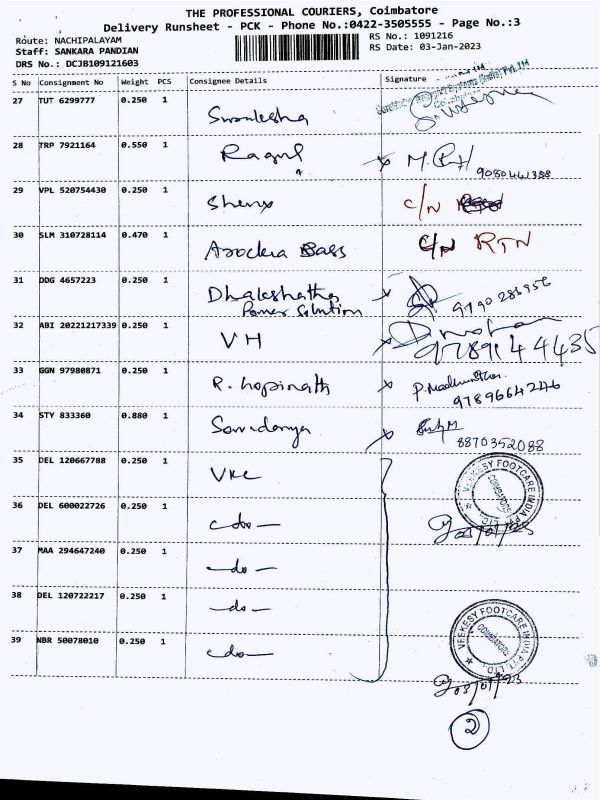 THE PROFESSIONAL COURIERS, Coimbatore
Delivery Runsheet - PCK - Phone No.:0422-3505555 - Page No.:3
Route: NACHIPALAYAM
RS No.: 1091216
Staff: SANKARA PANDIAN
RS Date: 03-Jan-2023
DRS No.: DCJB109121603
S No Consignment No Weight PCS Consignee Details Signature
27 TUT 6299777 0.250 1
28 TRP 7921164 0.550 1 Ragul 9080441388
29 VPL 520754430 0.250 1 C/N
30 SLM 310728114 0.470 1 Arockia Bass C/N RTN
31 DDG 4657223 0.250 1 Dhakshatha Power Solution 9790286956
32 ABI 20221217339 0.250 1 VH 9789144435
33 GGN 97980871 0.250 1 R. Gopinath 9789664246
34 STY 833360 0.880 1 8870352088
35 DEL 120667788 0.250 1 VKC
VEEKESY FOOTCARE INDIA PVT. LTD. COIMBATORE
36 DEL 600022726 0.250 1 - do - 03/01/23
37 MAA 294647240 0.250 1 - do -
38 DEL 120722217 0.250 1 - do -
39 NBR 50078010 0.250 1 - do -
VEEKESY FOOTCARE INDIA PVT. LTD. COIMBATORE
03/01/23
2